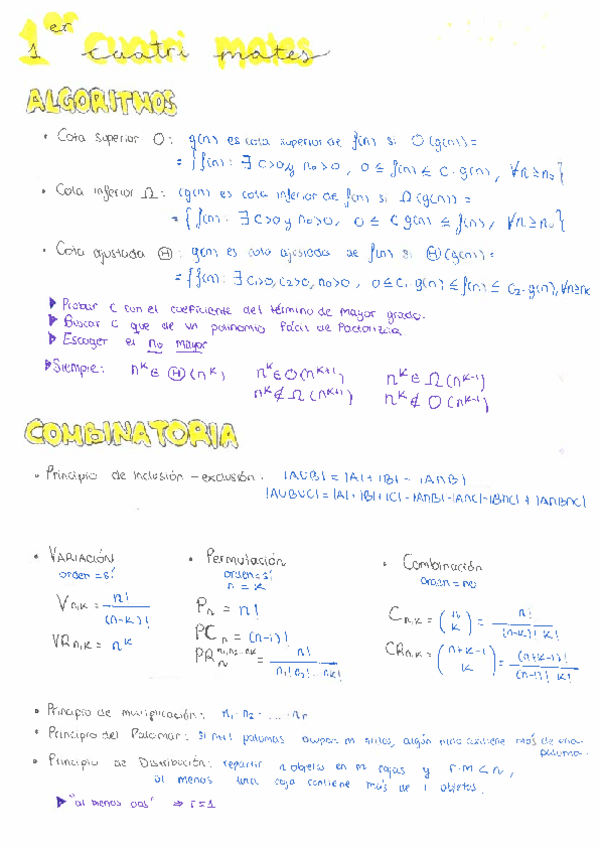 1er cuatri mates
ALGORITMOS
• Cota superior O: g(n) es cota superior de f(n) si O(g(n)) =
= {f(n): ∃ c>0 y n₀>0, 0 ≤ f(n) ≤ c·g(n), ∀n≥n₀}
• Cota inferior Ω: g(n) es cota inferior de f(n) si Ω(g(n)) =
= {f(n): ∃ c>0 y n₀>0, 0 ≤ c g(n) ≤ f(n), ∀n≥n₀}
• Cota ajustada Θ: g(n) es cota ajustada de f(n) si Θ(g(n)) =
= {f(n): ∃ c₁>0, c₂>0, n₀>0, 0≤c₁·g(n) ≤ f(n) ≤ c₂·g(n), ∀n≥n₀
▶ Probar c con el coeficiente del término de mayor grado.
▶ Buscar c que de un polinomio fácil de factorizar
▶ Escoger el n₀ mayor
▶ Siempre: nᵏ ∈ Θ(nᵏ) nᵏ ∈ O(nᵏ⁺¹) nᵏ ∈ Ω(nᵏ⁻¹)
nᵏ ∉ Ω(nᵏ⁺¹) nᵏ ∉ O(nᵏ⁻¹)
COMBINATORIA
• Principio de inclusión - exclusión: |A∪B| = |A| + |B| - |A∩B|
|A∪B∪C| = |A| + |B| + |C| - |A∩B| - |A∩C| - |B∩C| + |A∩B∩C|
• VARIACIÓN • Permutación • Combinación
orden = sí orden = sí orden = no
n = k
Vn,k = n! / (n-k)! Pn = n! Cn,k = (n k) = n! / (n-k)! k!
VRn,k = nᵏ PCn = (n-1)! CRn,k = (n+k-1 k) = (n+k-1)! / (n-1)! k!
PRn n₁,n₂...nk = n! / n₁! n₂! ... nk!
• Principio de multiplicación: n₁ · n₂ · .... · nr
• Principio del Palomar: si m+1 palomas ocupan m nidos, algún nido contiene más de una
paloma.
• Principio de Distribución: repartir n objetos en m cajas y r·m < n,
al menos una caja contiene más de r objetos.
▶ "al menos dos" ⇒ r=1